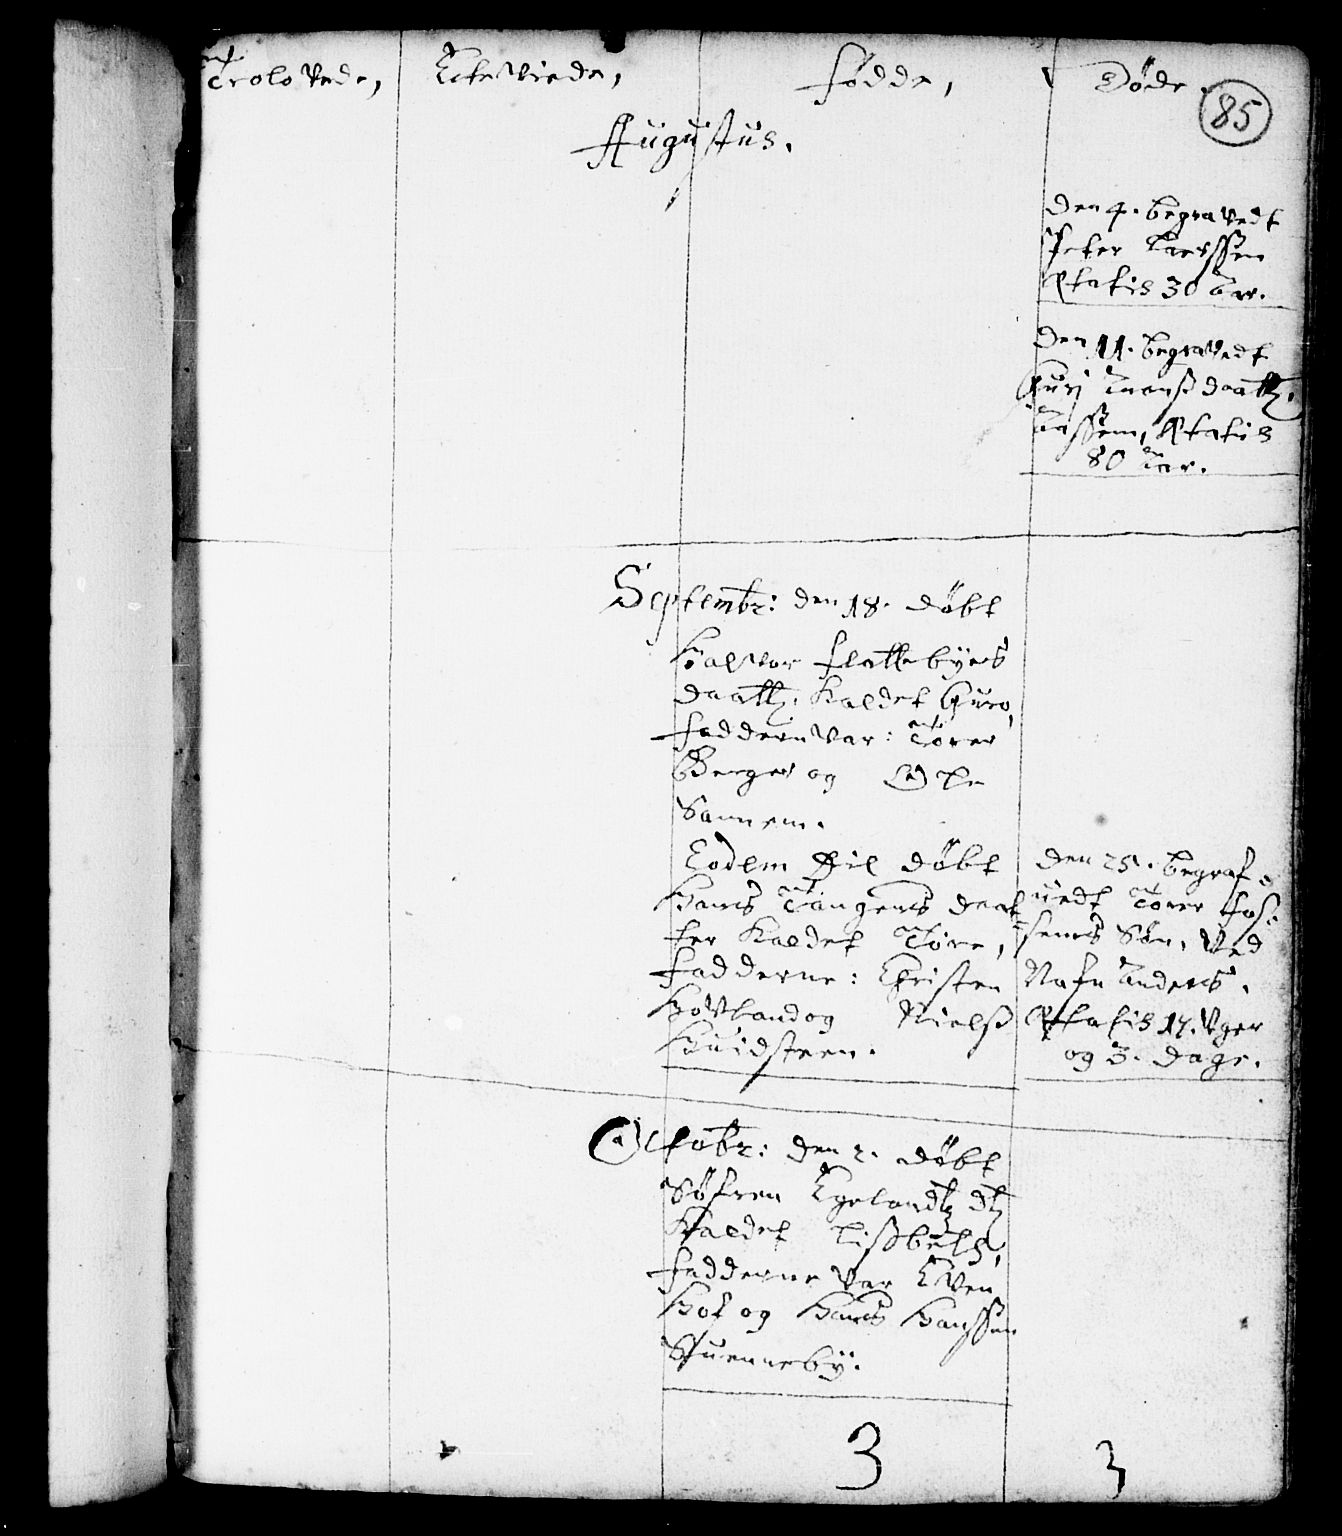 Trolovede, Ecteviede, fødde, Døde.
85
Augustus.
den 4. begravedt
Peter Larssen
Ætatis 30 Aar.
den 11. begravedt
Guri daatt.
Ætatis
80 Aar.
Septembr: den 18. døbt
Halvor flattebyes
daatt. Kaldet Guro,
faddern var: Tórer
Berger og Ole
Sannem.
Eodem Die døbt
Hans Tangens daat
ter Kaldet Tóre,
fadderne: Christen
Hovland og Nielss
Huidsteen.
den 25. begraf=
uedt Torer
senns Søn, Ved
Nafn Anders.
Ætatis 17. Uger
og 3. dage.
Octobr: den 2. døbt
Søfren Egelandtz dtz
Kaldet Lissbeth,
fadderne var Even
Hof og Hans Hanssen
3
3